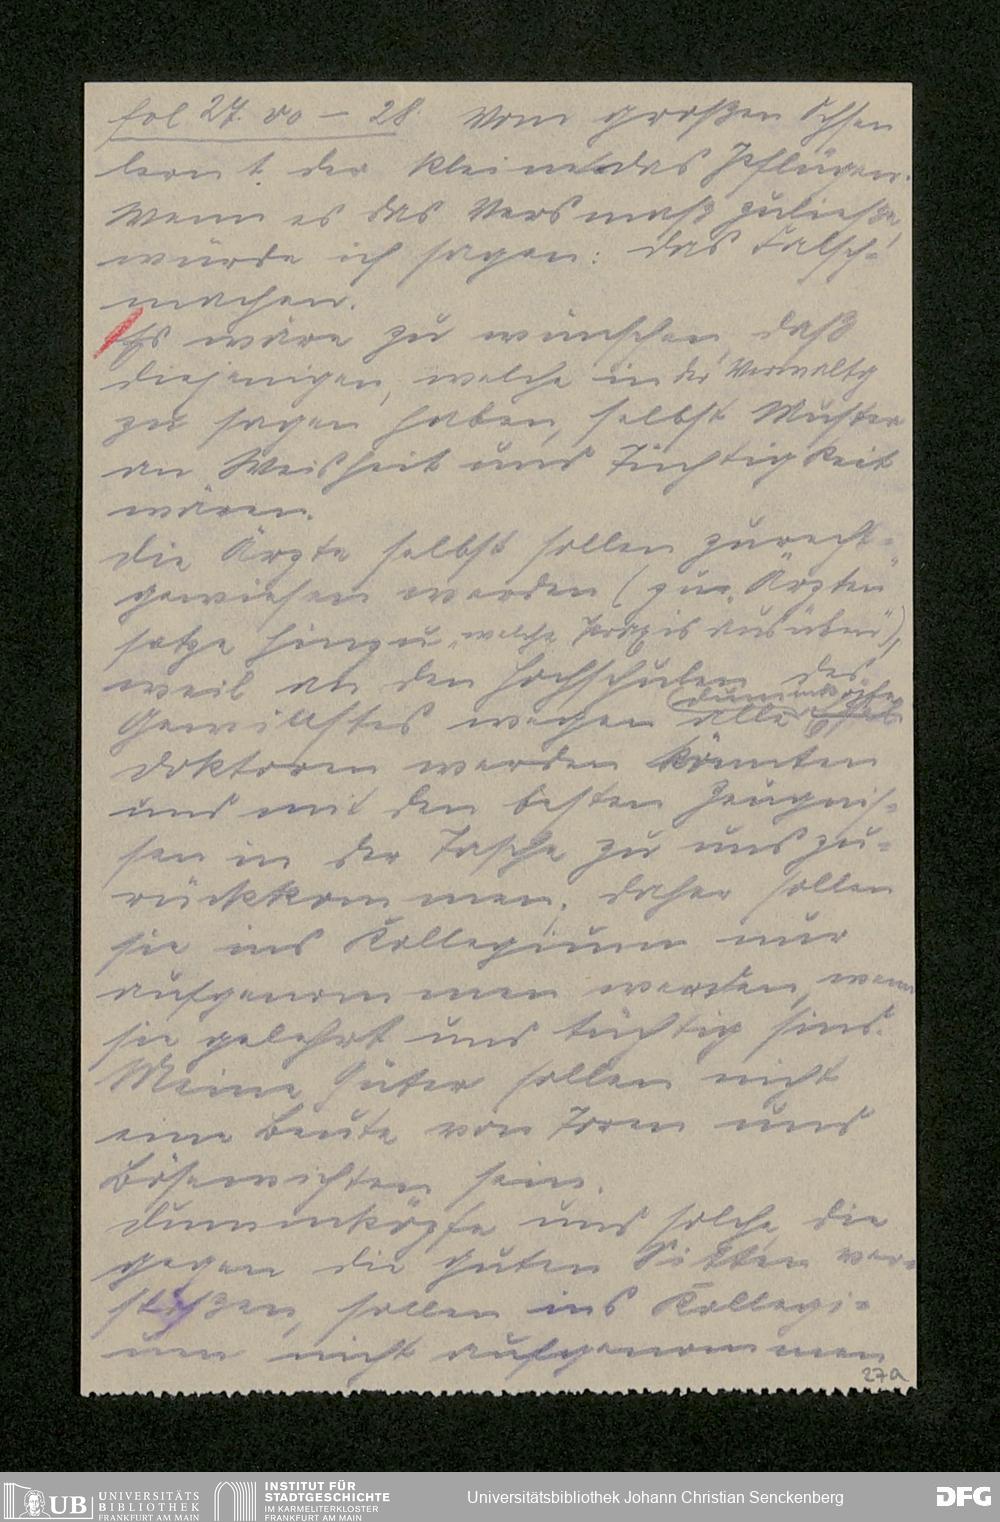 fol 27. vo – 28. Vom großen Ochsen
lernt der kleine das Pflügen.
Wenn es das Versmaß zuließe,
würde ich sagen: das Falsch-
machen.
Es wäre zu wünschen, daß
diejenigen, welche in der Verwaltg
zu sagen haben, selbst Muster
an Weisheit und Tüchtigkeit
wären.
Die Ärzte selbst sollen zurecht-
gewiesen werden (zu „Ärzten"
setze hinzu „welche Praxis ausüben"),
weil an den Hochschulen des
Dummköpfe
Gewinstes wegen alle
Doktoren werden könnten
und mit den besten Zeugnis-
sen in der Tasche zu uns zu-
rückkommen. Daher sollen
sie ins Kollegium nur
aufgenommen werden, wenn
sie gelehrt und tüchtig sind.
Meine Güter sollen nicht
eine Beute von Toren und
Bösewichten sein.
Dummköpfe und solche, die
gegen die guten Sitten ver-
stoßen, sollen ins Kollegi-
um nicht aufgenommen
27a
UB UNIVERSITÄTS
BIBLIOTHEK
FRANKFURT AM MAIN
INSTITUT FÜR
STADTGESCHICHTE
IM KARMELITERKLOSTER
FRANKFURT AM MAIN
Universitätsbibliothek Johann Christian Senckenberg
DFG